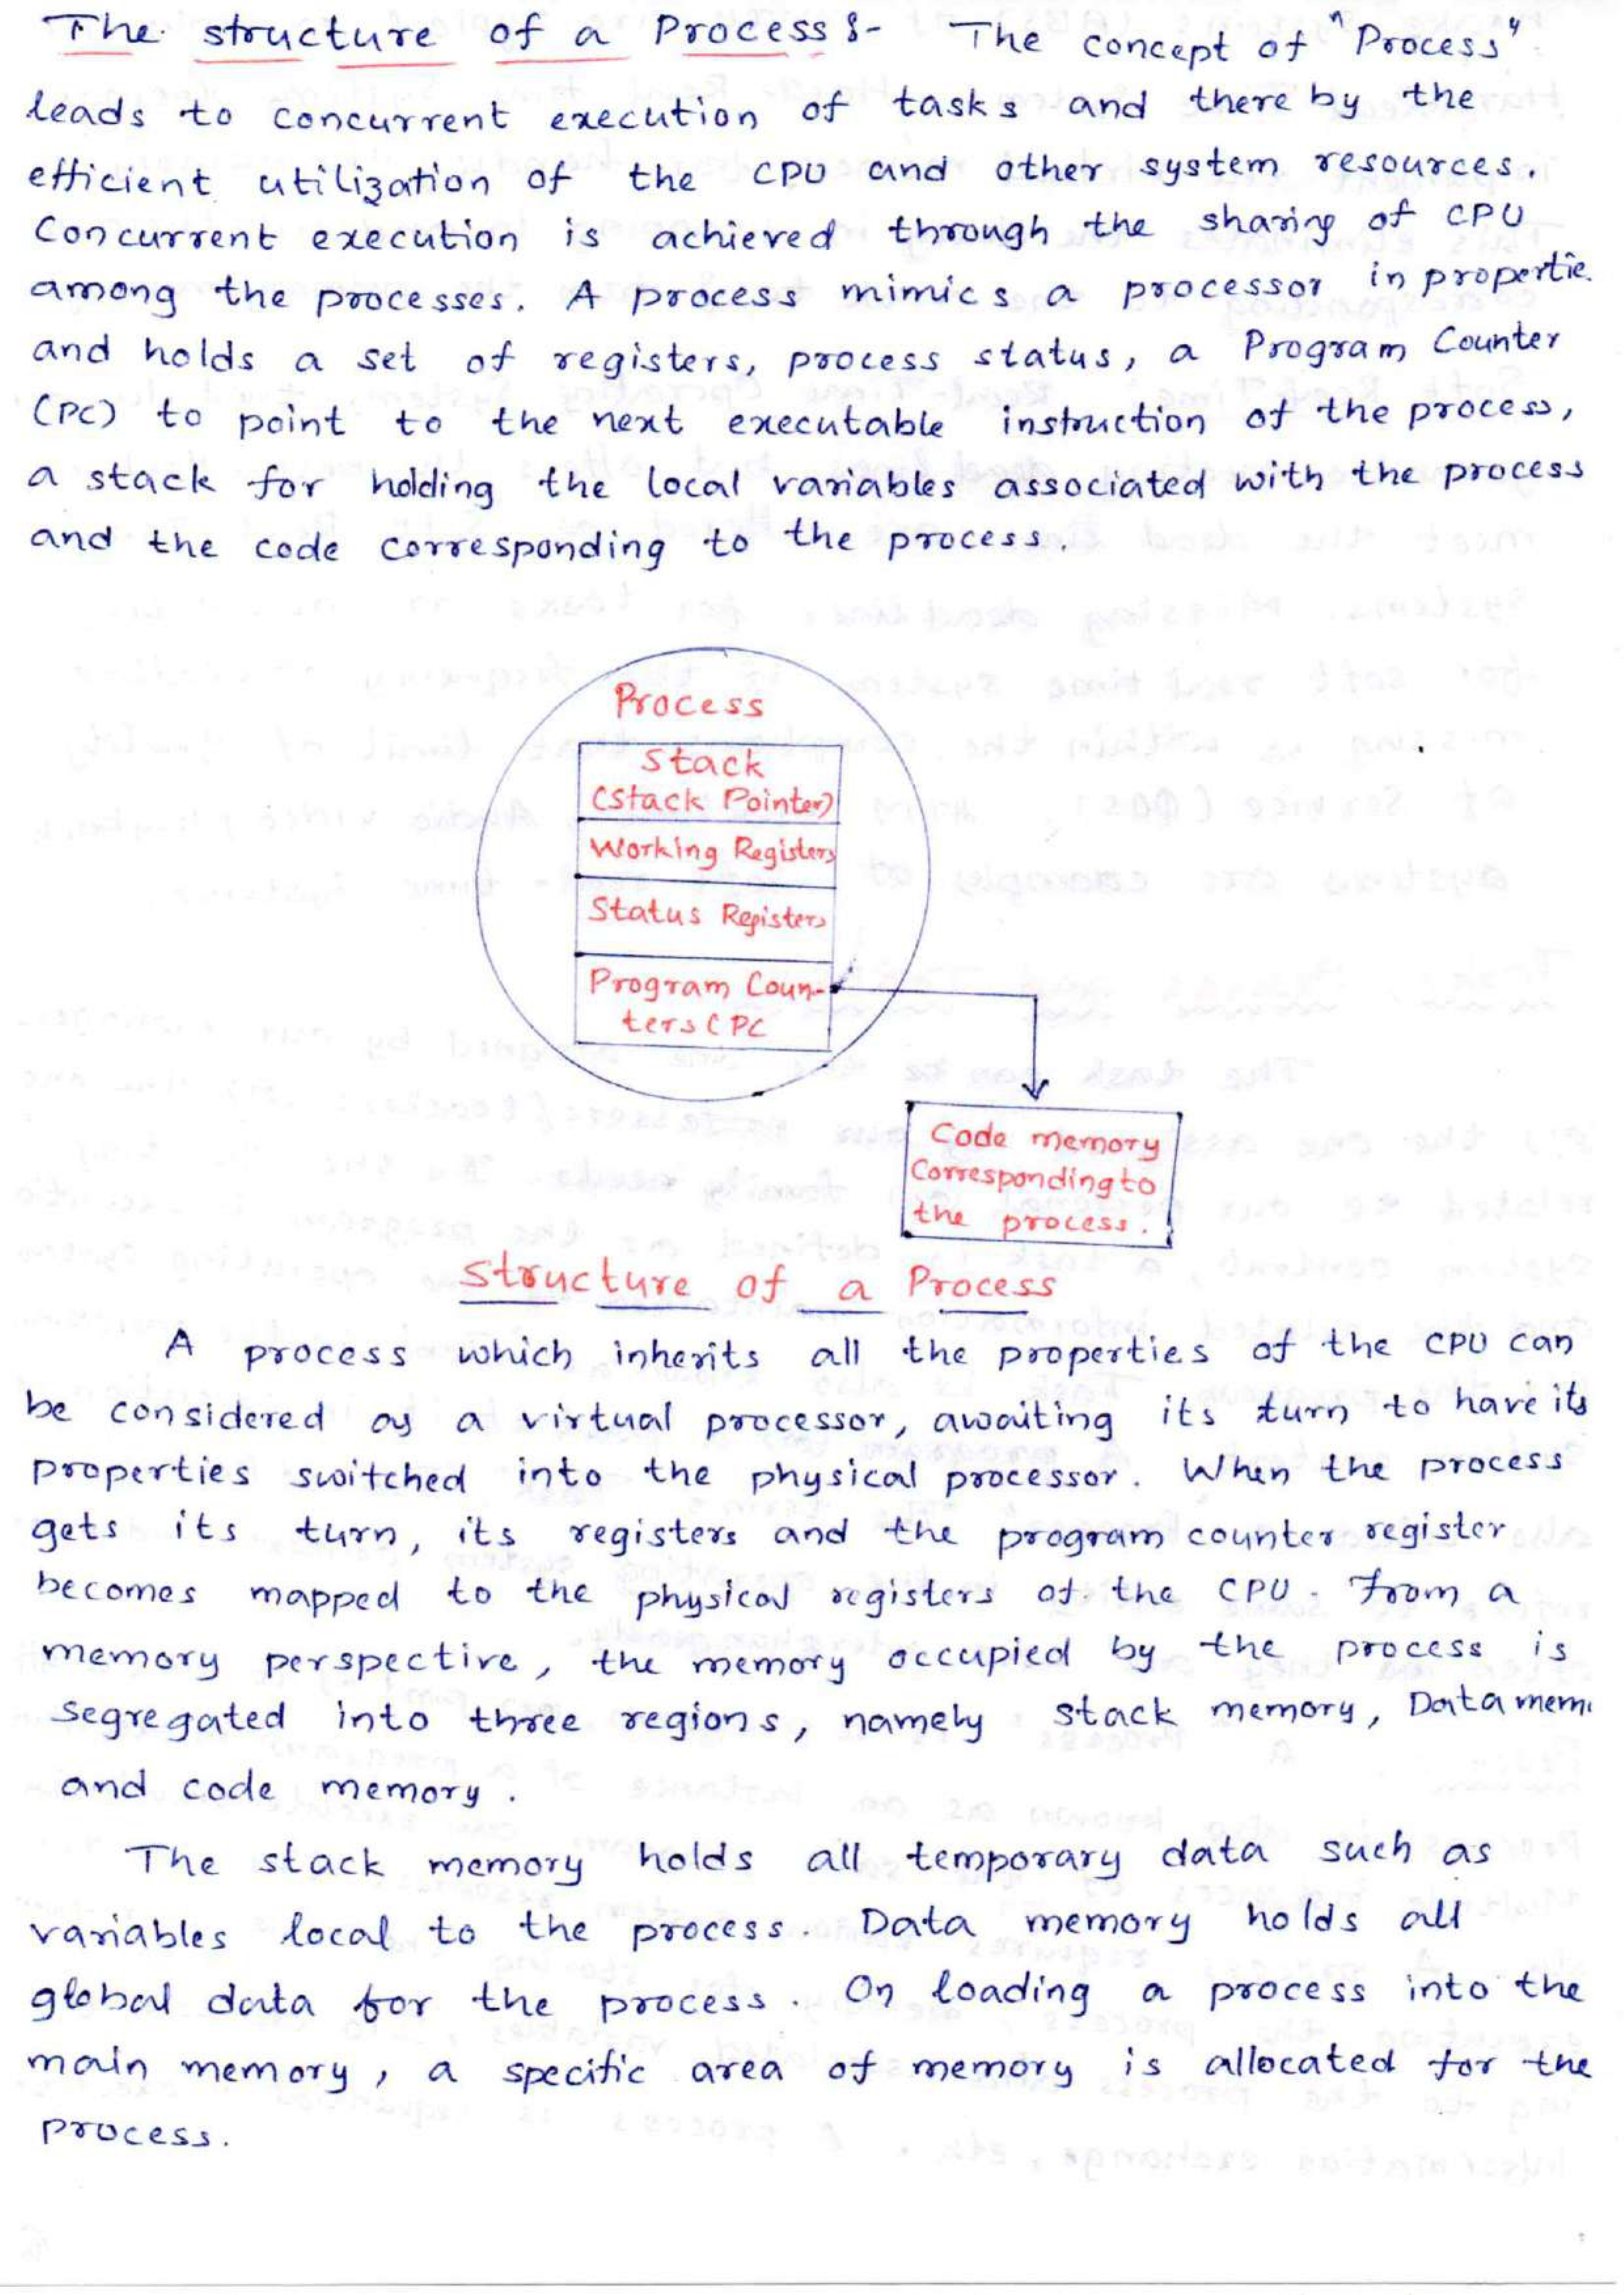 The structure of a Process :- The concept of "Process"
leads to concurrent execution of tasks and there by the
efficient utilization of the CPU and other system resources.
Concurrent execution is achieved through the sharing of CPU
among the processes. A process mimics a processor in propertie
and holds a set of registers, process status, a Program Counter
(PC) to point to the next executable instruction of the process,
a stack for holding the local variables associated with the process
and the code corresponding to the process.
Process
Stack
(Stack Pointer)
Working Registers
Status Registers
Program Coun-
ters (PC
Code memory
Corresponding to
the process.
Structure of a Process
A process which inherits all the properties of the CPU can
be considered as a virtual processor, awaiting its turn to have its
properties switched into the physical processor. When the process
gets its turn, its registers and the program counter register
becomes mapped to the physical registers of the CPU. From a
memory perspective, the memory occupied by the process is
segregated into three regions, namely stack memory, Data mem
and code memory.
The stack memory holds all temporary data such as
variables local to the process. Data memory holds all
global data for the process. On loading a process into the
main memory, a specific area of memory is allocated for the
process.